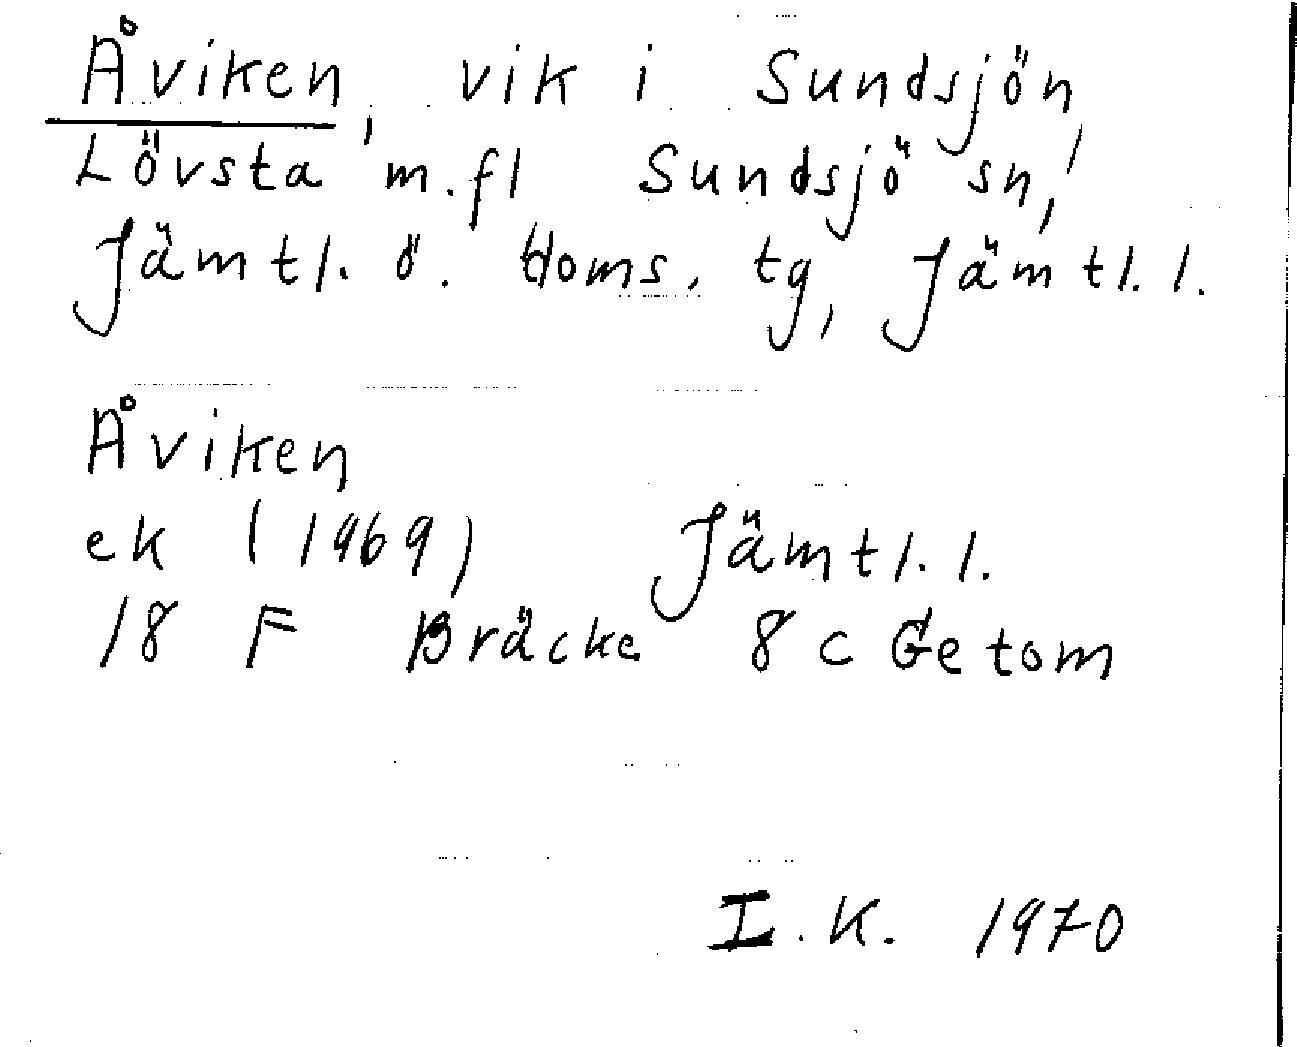 Åviken, vik i Sundsjön,
Lövsta m.fl Sundsjö sn,
Jämtl. ö. doms. tg, Jämtl. l.
Åviken
ek (1969) Jämtl. l.
18 F Bräcke 8 c Getom
I. K. 1970